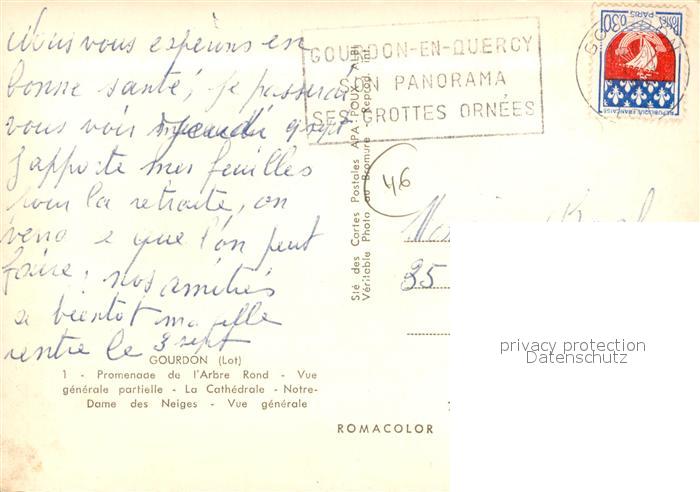 Nous vous espérons en
bonne santé. Je passerai
vous voir jeudi 9 sept
J'apporte mes feuilles
pour la retraite, on
verra ce que l'on peut
faire; nos amitiés
a bientôt ma fille
rentre le 3 sept
GOURDON (Lot)
1 - Promenade de l'Arbre Rond - Vue
générale partielle - La Cathédrale - Notre-
Dame des Neiges - Vue générale
GOURDON-EN-QUERCY
SON PANORAMA
SES GROTTES ORNÉES
Sté des Cartes Postales APA-POUX - ALBI
Véritable Photo au Bromure - Reprod. int.
46
0.30
PARIS
REPUBLIQUE FRANÇAISE
35
ROMACOLOR
privacy protection
Datenschutz